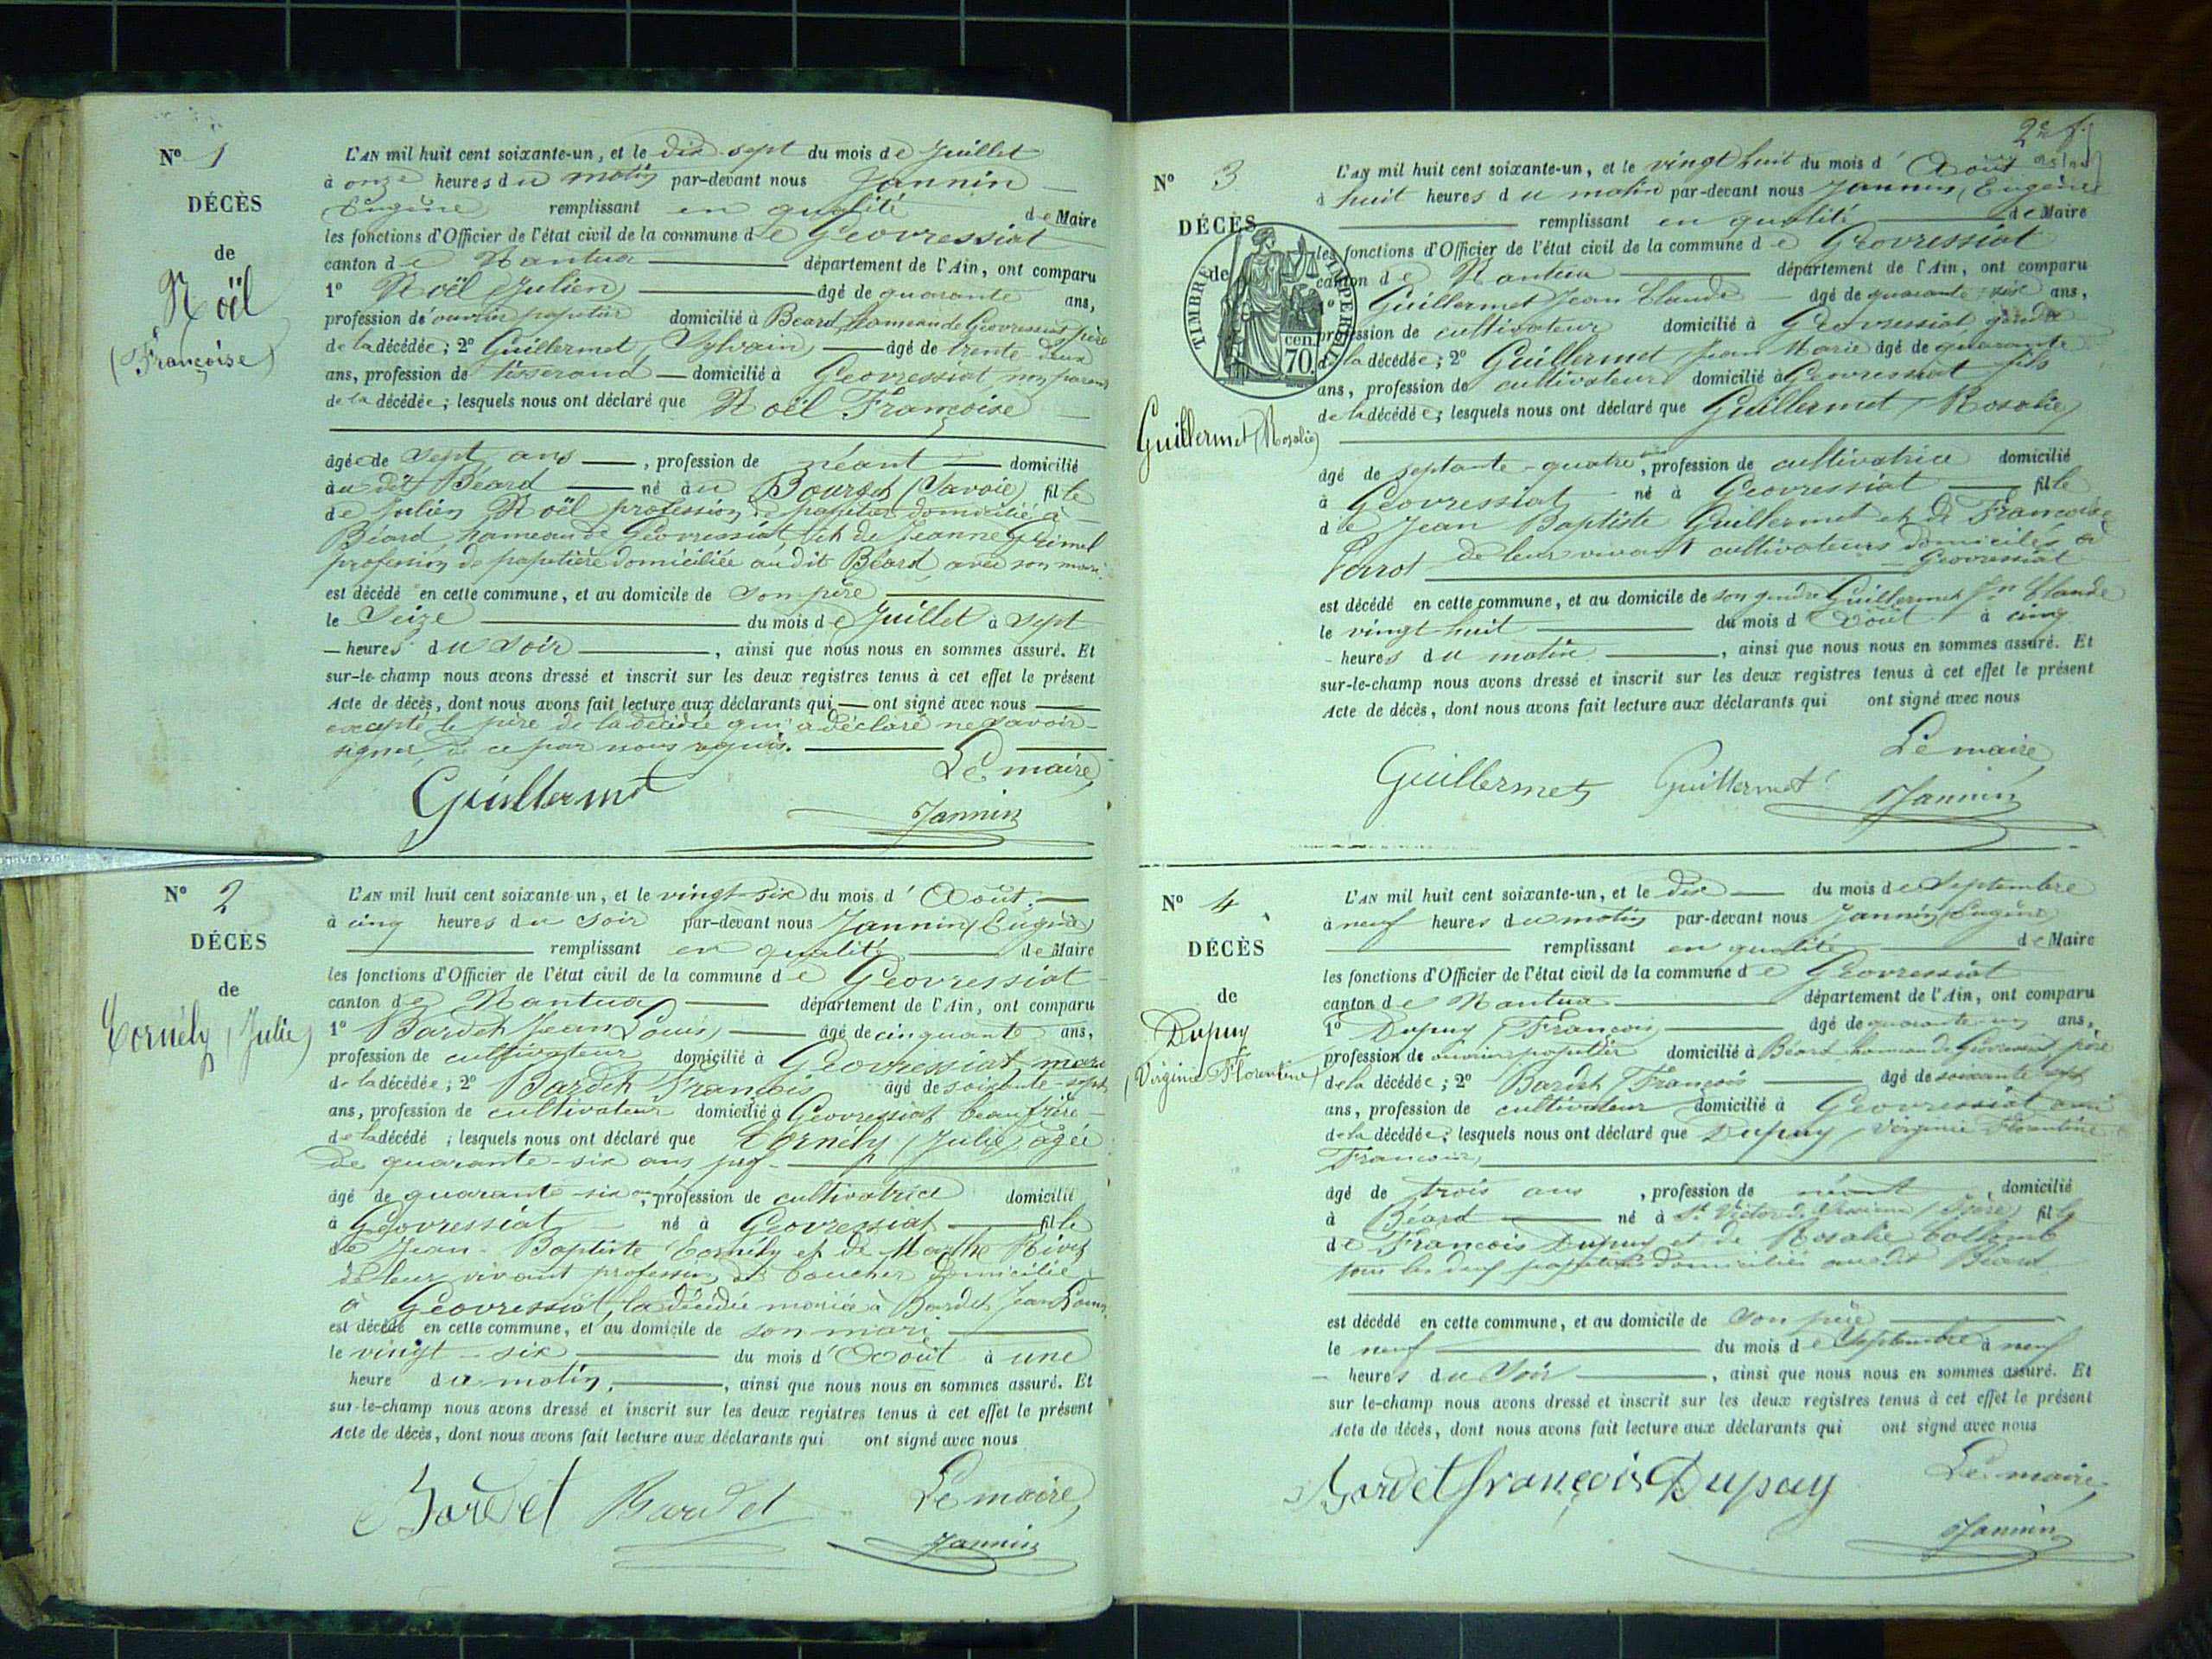 N° 1
DÉCÈS
de
Noël
(Françoise)
L'AN mil huit cent soixante-un, et le dix-sept du mois de Juillet
à onze heures du matin par-devant nous Jannin
Eugène remplissant en qualité de Maire
les fonctions d'Officier de l'état civil de la commune de Geovressiat
canton de Nantua département de l'Ain, ont comparu
1° Noël Julien âgé de quarante ans,
profession de ouvrier papetier domicilié à Béard hameau de Geovressiat père
de la décédée; 2° Guillermet, Sylvain, âgé de trente-deux
ans, profession de tisserand domicilié à Geovressiat, non parent
de la décédée; lesquels nous ont déclaré que Noël Françoise
âgée de sept ans, profession de néant domicilié
au dit Béard né au Bourget (Savoie) fille
de Julien Noël profession de papetier domicilié à
Béard hameau de Geovressiat et de Jeanne Grimel
profession de papetière domiciliée au dit Béard avec son mari.
est décédé en cette commune, et au domicile de son père
le Seize du mois de Juillet à sept
heures du soir, ainsi que nous nous en sommes assuré. Et
sur-le-champ nous avons dressé et inscrit sur les deux registres tenus à cet effet le présent
Acte de décès, dont nous avons fait lecture aux déclarants qui ont signé avec nous
excepté le père de la décédée qui a déclaré ne savoir
signer, de ce par nous requis.
Le maire,
Guillermet
Jannin
N° 2
DÉCÈS
de
Cornély (Julie)
L'AN mil huit cent soixante-un, et le vingt-six du mois d'Août.
à cinq heures du soir par-devant nous Jannin (Eugène)
remplissant en qualité de Maire
les fonctions d'Officier de l'état civil de la commune de Geovressiat
canton de Nantua département de l'Ain, ont comparu
1° Bardet Jean Louis, âgé de cinquante ans,
profession de cultivateur domicilié à Geovressiat mari
de la décédée; 2° Bardet François âgé de soixante-sept
ans, profession de cultivateur domicilié à Geovressiat beau frère
de la décédé; lesquels nous ont déclaré que Cornély (Julie) agée
de quarante-six ans prof-
âgé de quarante-six ans, profession de cultivatrice domicilié
à Geovressiat né à Geovressiat fille
de Jean-Baptiste Cornély et de Marthe Rivet
de leur vivant profession de boucher domicilié
à Geovressiat, la décédée mariée à Bardet Jean Louis
est décédé en cette commune, et au domicile de son mari
le vingt-six du mois d'Août à une
heure du matin, ainsi que nous nous en sommes assuré. Et
sur-le-champ nous avons dressé et inscrit sur les deux registres tenus à cet effet le présent
Acte de décès, dont nous avons fait lecture aux déclarants qui ont signé avec nous
Bardet Bardet Le maire,
Jannin
2e f.
N° 3
DÉCÈS
de
TIMBRE IMPERIAL
70 cen.
Guillermet (Rosalie)
L'AN mil huit cent soixante-un, et le vingt huit du mois d'Août
à huit heures du matin par-devant nous Jannin, Eugène
remplissant en qualité de Maire
les fonctions d'Officier de l'état civil de la commune de Geovressiat
canton de Nantua département de l'Ain, ont comparu
1° Guillermet Jean Claude âgé de quarante-six ans,
profession de cultivateur domicilié à Geovressiat gendre
de la décédée; 2° Guillermet Jean Marie âgé de quarante
ans, profession de cultivateur domicilié à Geovressiat fils
de la décédée; lesquels nous ont déclaré que Guillermet Rosalie
âgé de septante-quatre ans, profession de cultivatrice domicilié
à Geovressiat né à Geovressiat fille
de Jean Baptiste Guillermet et de Françoise
de leur vivant cultivateurs domiciliés à
Geovressiat
est décédé en cette commune, et au domicile de son gendre Guillermet Jn Claude
le vingt-huit du mois d'Août à cinq
heures du matin, ainsi que nous nous en sommes assuré. Et
sur-le-champ nous avons dressé et inscrit sur les deux registres tenus à cet effet le présent
Acte de décès, dont nous avons fait lecture aux déclarants qui ont signé avec nous
Le maire,
Guillermet Guillermet Jannin
N° 4
DÉCÈS
de
Dupuy
(Virginie Florentine)
L'AN mil huit cent soixante-un, et le dix du mois de Septembre
à neuf heures du matin par-devant nous Jannin (Eugène)
remplissant en qualité de Maire
les fonctions d'Officier de l'état civil de la commune de Geovressiat
canton de Nantua département de l'Ain, ont comparu
1° Dupuy François âgé de quarante-un ans,
profession de ouvrier papetier domicilié à Béard hameau de Geovressiat père
de la décédée; 2° Bardet François âgé de soixante sept
ans, profession de cultivateur domicilié à Geovressiat ami
de la décédée; lesquels nous ont déclaré que Dupuy Virginie Florentine
âgé de trois ans, profession de néant domicilié
à Béard né à St Victor de (Isère) fille
de François Dupuy et de Rosalie Collomb
tous les deux papetiers domiciliés audit Béard
est décédé en cette commune, et au domicile de son père
le neuf du mois de Septembre à neuf
heures du soir, ainsi que nous nous en sommes assuré. Et
sur le-champ nous avons dressé et inscrit sur les deux registres tenus à cet effet le présent
Acte de décès, dont nous avons fait lecture aux déclarants qui ont signé avec nous
Bardet françois Dupuy Le maire,
Jannin